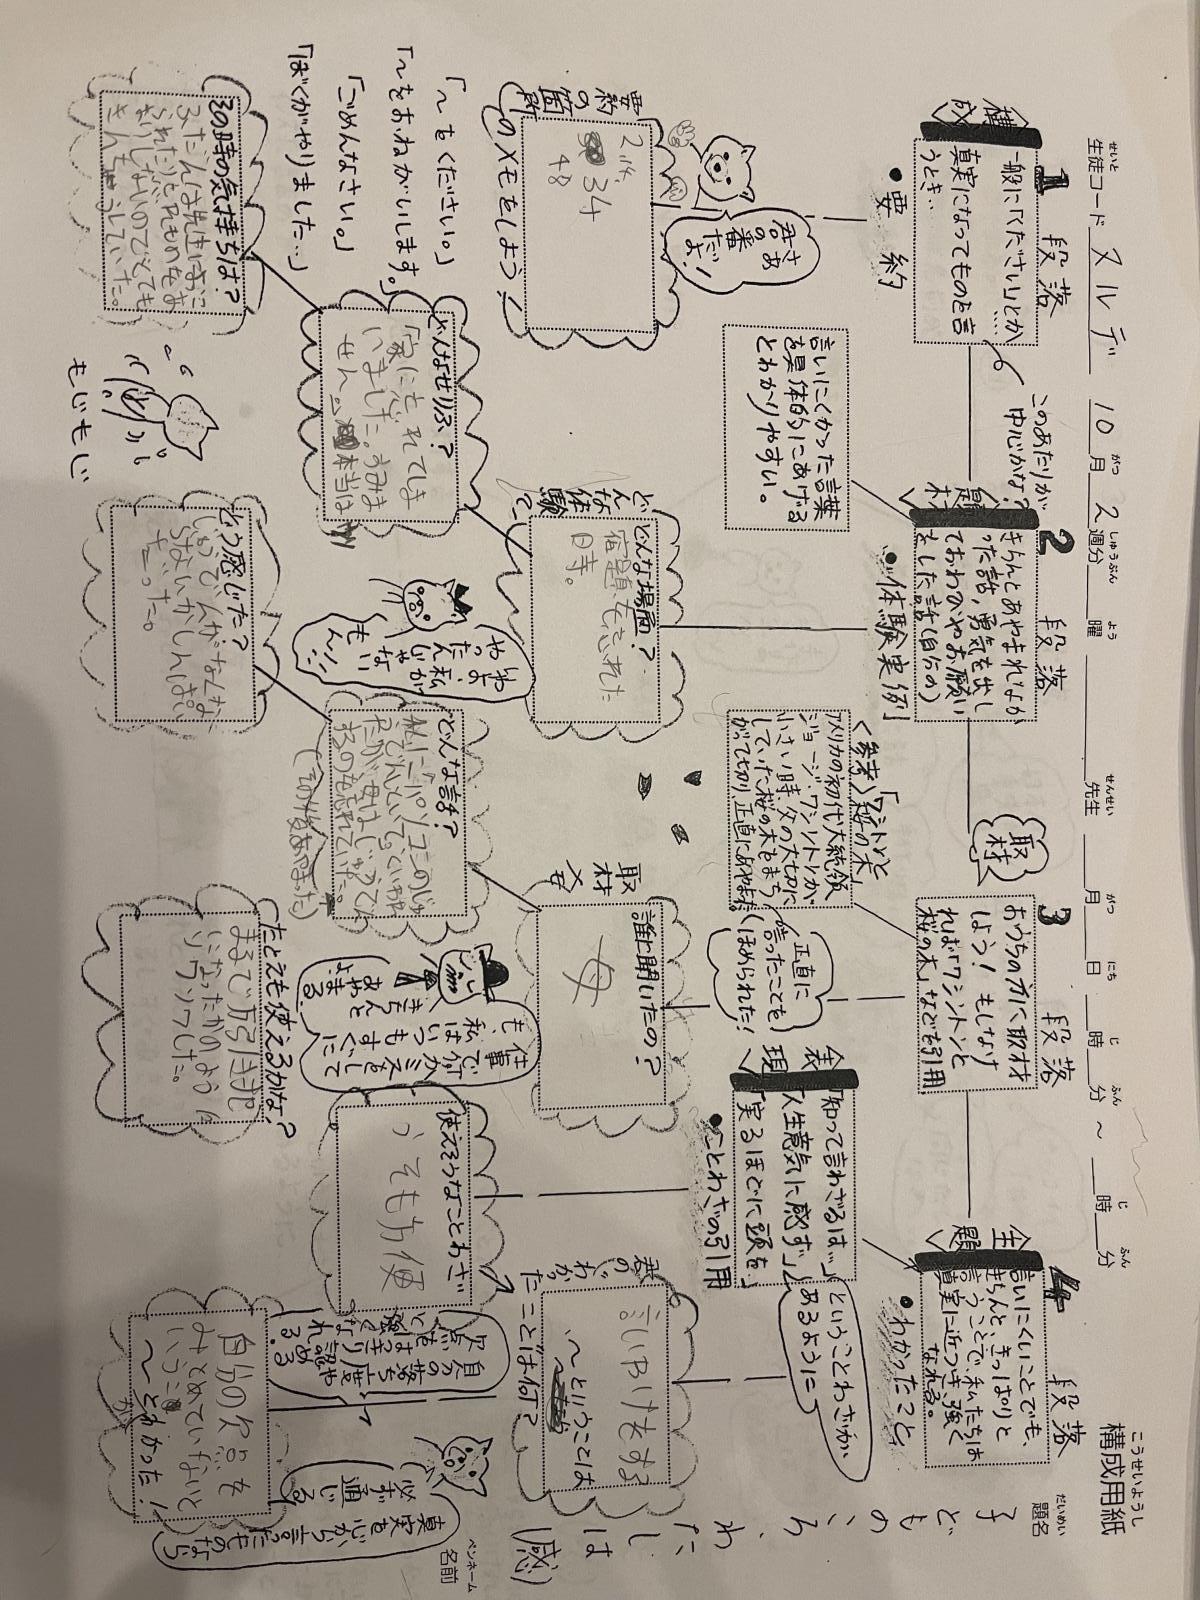 こうせいようし
構成用紙
せいと
生徒コード スルデ 10月2週分 曜 先生 月 日 時 分 ～ 時 分
がつ しゅうぶん よう せんせい がつ にち じ ふん じ ふん
だいめい
題名
子どものころ、わたしは(感)
ペンネーム
名前
構成
1 段落
一般に「ください」とか‥‥
真実になってものを言
うとき…
このあたりが
中心かな?
•要約
さあ
君の番
だよ!
要約の箇所
のメモをしよう!
34
48
「～をください。」
「～をおねがいします。」
「ごめんなさい。」
「ぼくがやりました…」
言いにくかった言葉
を具体的にあげる
とわかりやすい。
題材
2 段落
きちんとあやまればよか
った話,勇気を出し
ておわびやお願い
をした話(自分の)
•体験実例
どんな体験?
どんな場面?
宿題をわすれた
日時。
どんなせりふ?
「家に忘れてしま
いました。すみま
せん。」本当は
その時の気持ちは?
ふだんは先生におこ
られたり
なりしないのでとても
きんちょうしていた。
もじもじ
わ、わ私が
やったんじゃない
もん!!
取材
3 段落
おうちの方に取材
しよう! もしなけ
れば「ワシントンと
桜の木」などを引用
<参考>「ワシントンと
桜の木」
アメリカの初代大統領
ジョージ・ワシントンが
小さい時,父の大切に
していた桜の木をまち
がって切り,正直にあやまった
(正直に
言ったことを
ほめられた!
取材メモ
誰に聞いたの?
母
どんな話?
(その後あやまった)
どう感じた?
たとえも使えるかな?
まるで
になったかのように
ソワソワした。
仕事で何かミスをして
も、私はいつもすぐに
きちんと
あやまる
よ。
表現
「知って言わざるは…」
「人生意気に感ず」
「実るほどに頭を」
•ことわざの引用
ということわざが
あるように
使えそうなことわざ
うそも方便
主題
4 段落
言いにくいことでも、
きちんと、きっぱりと
言うことで私たちは
真実に近づき強く
なれる。
•わかったこと
君のわかった
ことは何?
言いわけをする
～ということは
自分の落ち度や
欠点をはっきり認め
ると強くなれる。
自分の欠点を
みとめていないと
いうこと
～とわかった!
真実を心から言ったものなら
必ず通じる